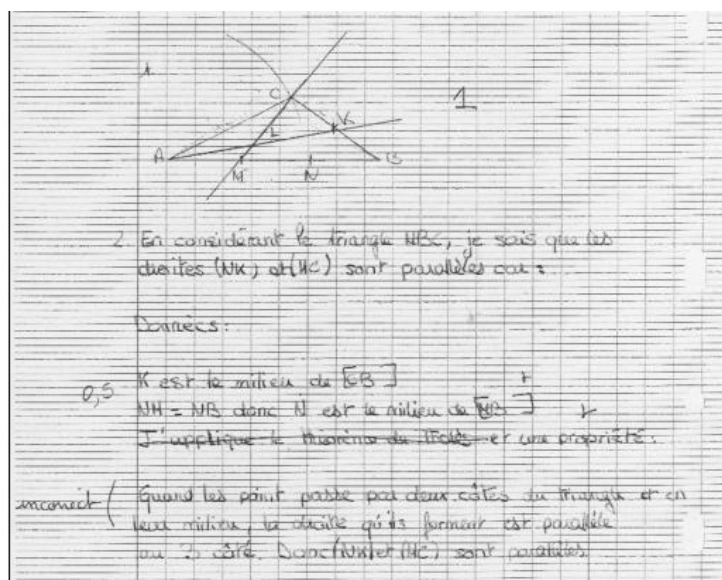 1.
C
1
L
K
A
M
N
B
2. En considérant le triangle MBC, je sais que les
droites (NK) et (MC) sont parallèles car :
Données :
0,5
K est le milieu de [CB]
NM = NB donc N est le milieu de [MB]
J'applique le théorème de Thalès et une propriété :
incorrect
Quand les point passe par deux côtés du triangle et en
leur milieu, la droite qu'ils forment est parallèle
au 3 côté. Donc (NK) et (MC) sont parallèles